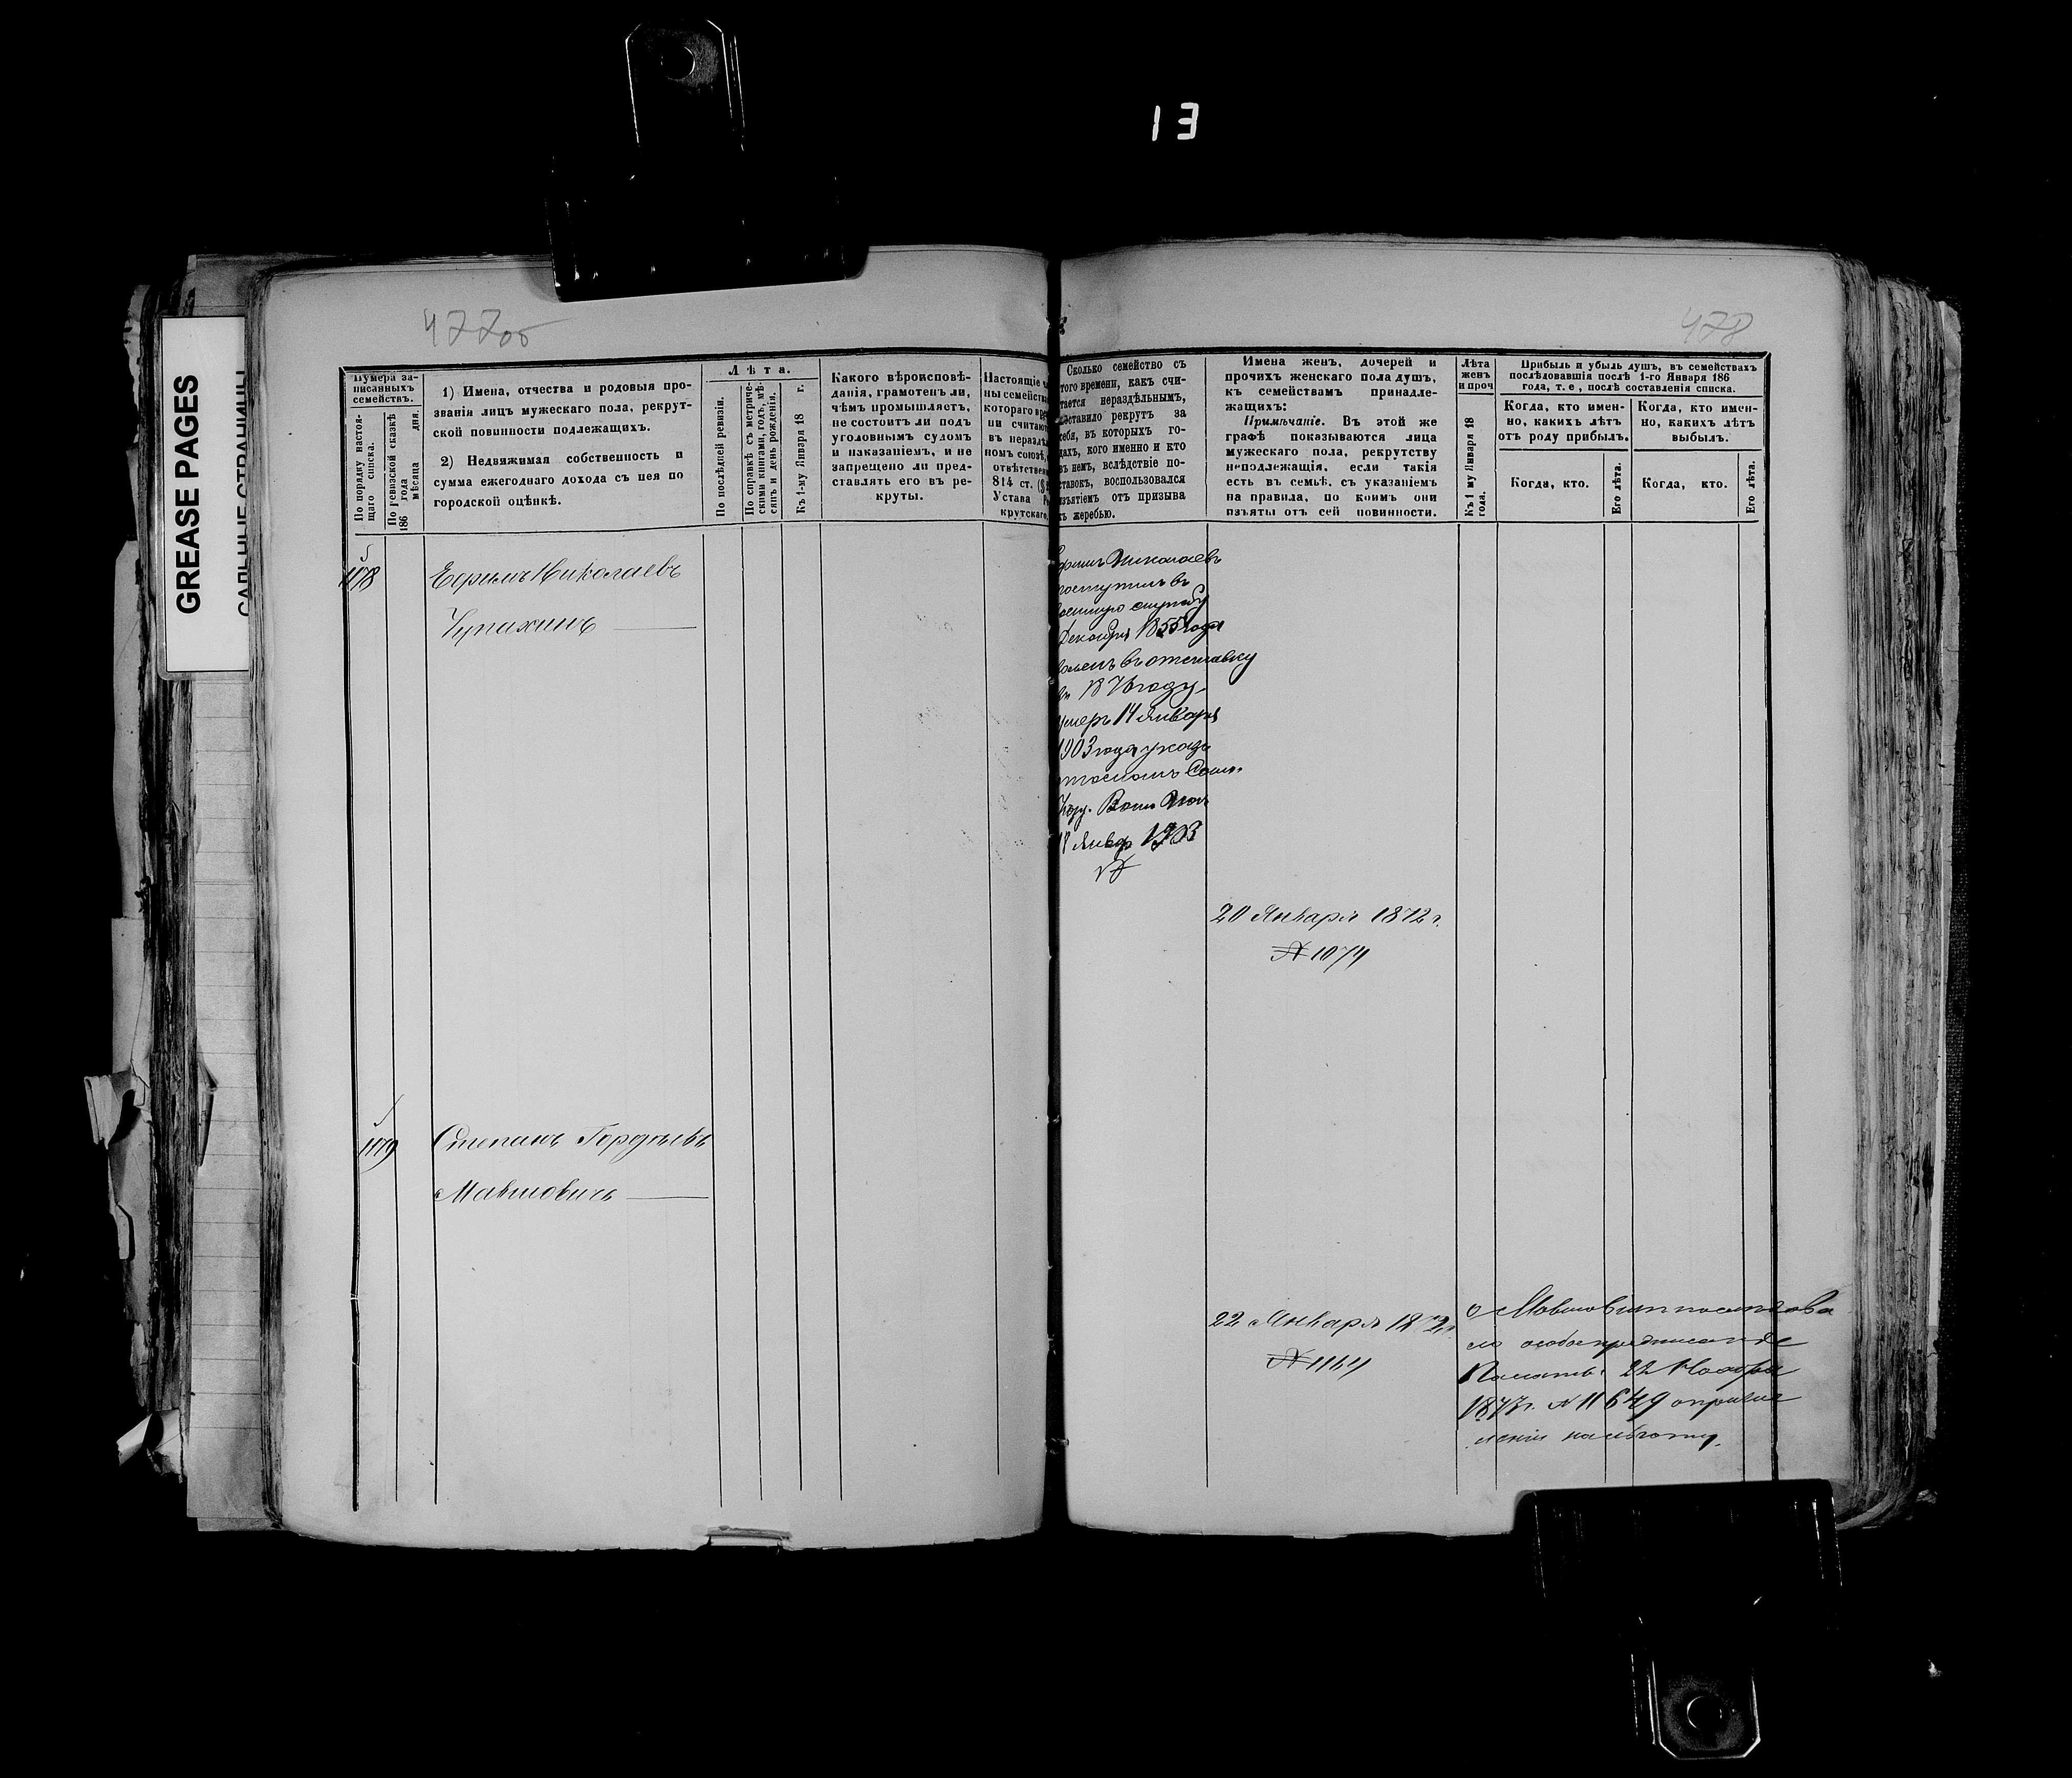 13
GREASE PAGES
477 об
478
Нумера за-
писанныхъ
семействъ.
По порядку настоя-
щаго списка.
По ревизской сказкѣ
186 года мѣсяца дня.
1) Имена, отчества и родовыя про-
званія лицъ мужескаго пола, рекрут-
ской повинности подлежащихъ.
2) Недвижимая собственность и
сумма ежегоднаго дохода съ нея по
городской оцѣнкѣ.
Лѣта.
По послѣдней ревизіи.
По справкѣ съ метриче-
скими книгами, годъ, мѣ-
сяцъ и день рожденія.
Къ 1-му Января 18 г.
Какого вѣроисповѣ-
данія, грамотенъ ли,
чѣмъ промышляетъ,
не состоитъ ли подъ
уголовнымъ судомъ
и наказаніемъ, и не
запрещено ли пред-
ставлять его въ ре-
круты.
Настоящіе
ны семейств
котораго вре
ни считают
въ неразд
номъ союзѣ,
отвѣтствен
814 ст. (§
Устава Ре
крутскаго.
Сколько семейство съ
того времени, какъ счи-
тается нераздѣльнымъ,
поставило рекрутъ за
себя, въ которыхъ го-
дахъ, кого именно и кто
въ немъ, вслѣдствіе по-
ставокъ, воспользовался
изъятіемъ отъ призыва
къ жеребью.
Имена женъ, дочерей и
прочихъ женскаго пола душъ,
къ семействамъ принадле-
жащихъ:
Примѣчаніе. Въ этой же
графѣ показываются лица
мужескаго пола, рекрутству
неподлежащія, если такія
есть въ семьѣ, съ указаніемъ
на правила, по коимъ они
изъяты отъ сей повинности.
Лѣта
женъ
и проч
Къ 1 му Января 18
года.
Прибыль и убыль душъ, въ семействахъ
послѣдовавшія послѣ 1-го Января 186
года, т. е., послѣ составленія списка.
Когда, кто имен-
но, какихъ лѣтъ
отъ роду прибылъ.
Когда, кто имен-
но, какихъ лѣтъ
выбылъ.
Когда, кто.
Его лѣта.
Когда, кто.
Его лѣта.
1178
Ефимъ Николаевъ
Чупахинъ
Ефимъ Николаевъ
поступилъ въ
военную службу
Декабря 1855 года
въ отставку
въ году
умеръ 14 Января
1903 года указъ
18 Янвр 1903
20 Января 1872 г.
№ 1074
1179
Степанъ Гордѣевъ
Мавиловичъ
22 Января 1872 г.
№ 1164
о послѣдова
ло особое предписаніе
Палаты 22 Ноября
1877 г. № 11649 о причис
леніи на льготу.